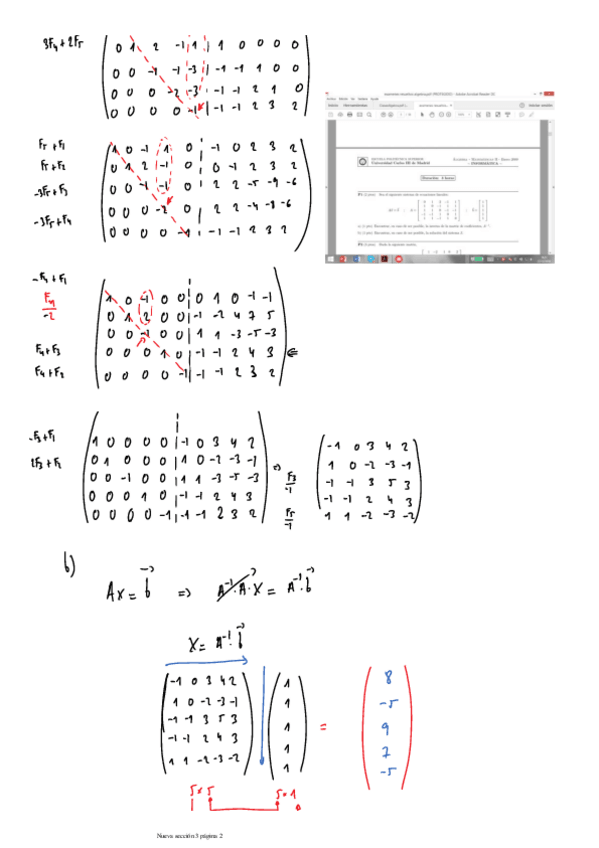 3F₄+2F₅
0 1 2 -1 1 | 1 0 0 0 0
0 0 -1 -1 -3 | -1 -1 1 0 0
0 0 0 -2 -3 | -1 -1 2 1 0
0 0 0 0 -1 | -1 -1 2 3 2
F₅+F₁
F₅+F₂
-3F₅+F₃
-3F₅+F₄
1 0 -1 1 0 | -1 0 2 3 2
0 1 2 -1 0 | 0 -1 2 3 2
0 0 -1 -1 0 | 2 2 -5 -9 -6
0 0 0 -2 0 | 2 2 -4 -8 -6
0 0 0 0 -1 | -1 -1 2 3 2
-F₄+F₁
F₄/-2
F₄+F₃
F₄+F₂
1 0 -1 0 0 | 0 1 0 -1 -1
0 1 2 0 0 | -1 -2 4 7 5
0 0 -1 0 0 | 1 1 -3 -5 -3
0 0 0 1 0 | -1 -1 2 4 3
0 0 0 0 -1 | -1 -1 2 3 2
-F₃+F₁
2F₃+F₂
1 0 0 0 0 | -1 0 3 4 2
0 1 0 0 0 | 1 0 -2 -3 -1
0 0 -1 0 0 | 1 1 -3 -5 -3
0 0 0 1 0 | -1 -1 2 4 3
0 0 0 0 -1 | -1 -1 2 3 2
⇒
F₃/-1
F₅/-1
-1 0 3 4 2
1 0 -2 -3 -1
-1 -1 3 5 3
-1 -1 2 4 3
1 1 -2 -3 -2
b)
Ax = b⃗ ⇒ A⁻¹·A·x = A⁻¹·b⃗
X = A⁻¹·b⃗
-1 0 3 4 2
1 0 -2 -3 -1
-1 -1 3 5 3
-1 -1 2 4 3
1 1 -2 -3 -2
1
1
1
1
1
=
8
-5
9
7
-5
5×5 5×1
Nueva sección3 página 2
Universidad Carlos III de Madrid